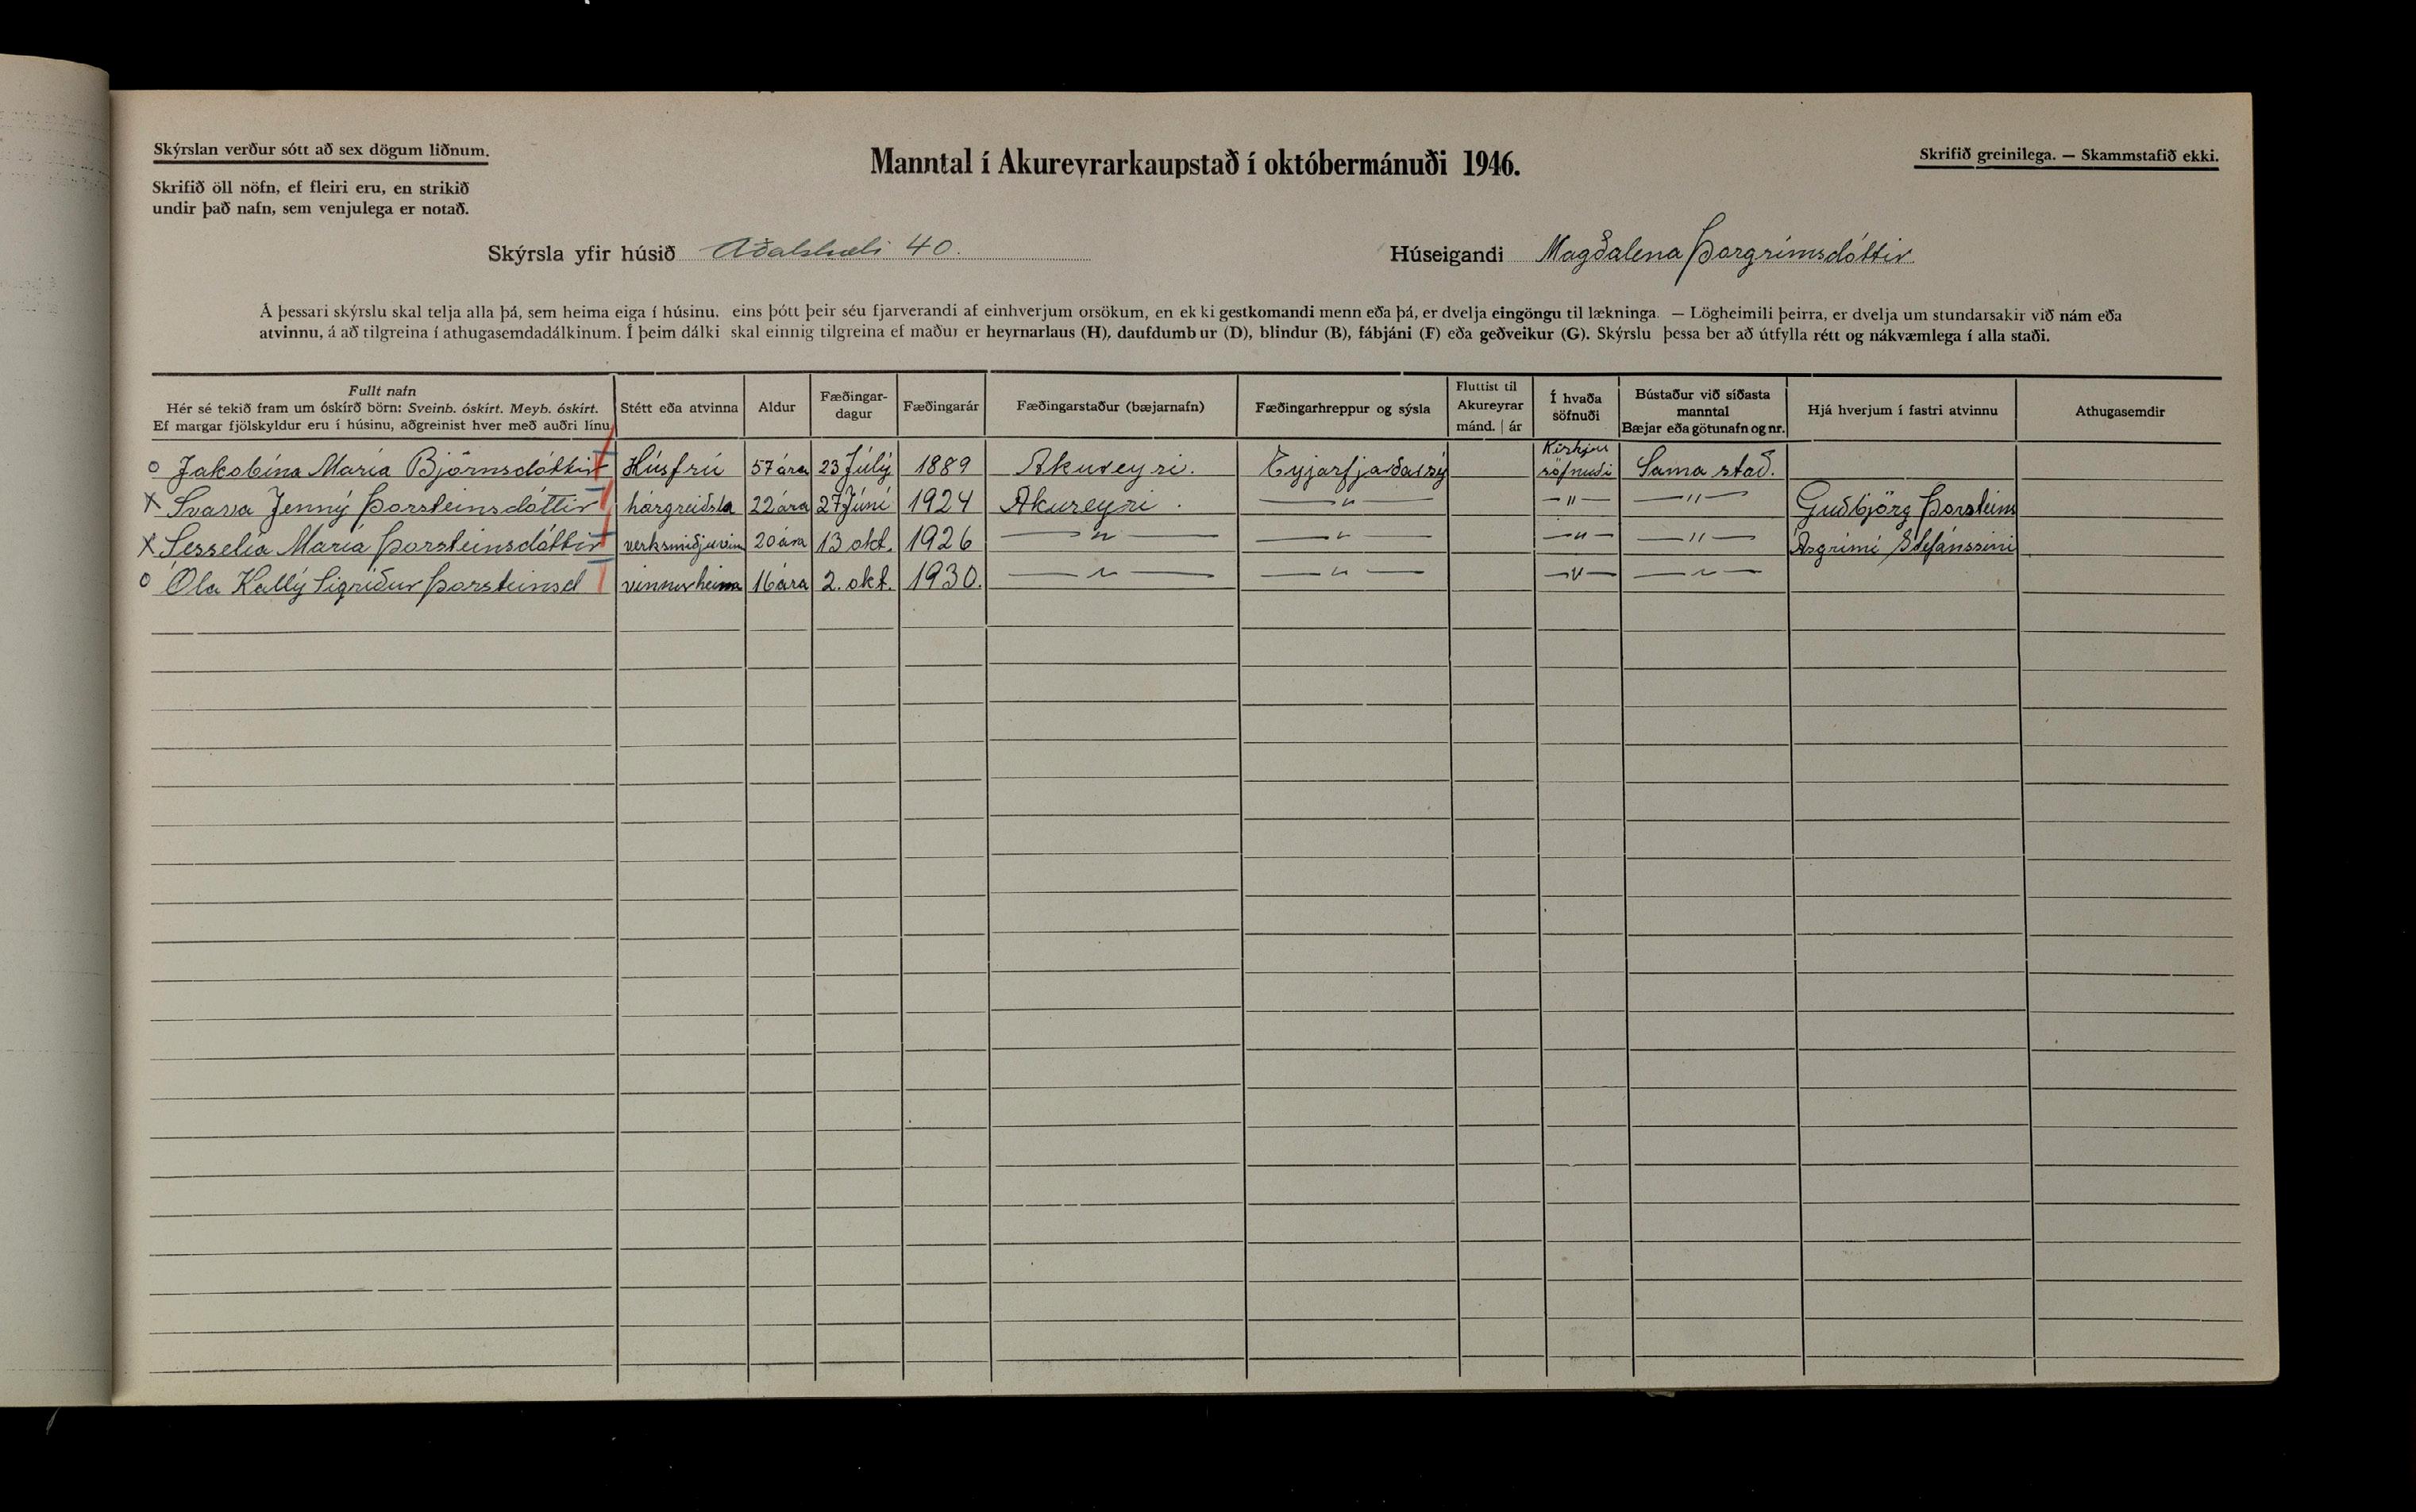 Skýrslan verður sótt að sex dögum liðnum.
Manntal í Akureyrarkaupstað í októbermánuði 1946.
Skrifið greinilega. — Skammstafið ekki.
Skrifið öll nöfn, ef fleiri eru, en strikið
undir það nafn, sem venjulega er notað.
Skýrsla yfir húsið Aðalstræti 40.
Húseigandi Magðalena Þorgrímsdóttir
Á þessari skýrslu skal telja alla þá, sem heima eiga í húsinu, eins þótt þeir séu fjarverandi af einhverjum orsökum, en ekki gestkomandi menn eða þá, er dvelja eingöngu til lækninga. — Lögheimili þeirra, er dvelja um stundarsakir við nám eða
atvinnu, á að tilgreina í athugasemdadálkinum. Í þeim dálki skal einnig tilgreina ef maður er heyrnarlaus (H), daufdumbur (D), blindur (B), fábjáni (F) eða geðveikur (G). Skýrslu þessa ber að útfylla rétt og nákvæmlega í alla staði.
Fullt nafn
Hér sé tekið fram um óskírð börn: Sveinb. óskírt. Meyb. óskírt.
Ef margar fjölskyldur eru í húsinu, aðgreinist hver með auðri línu
Stétt eða atvinna
Aldur
Fæðingar-
dagur
Fæðingarár
Fæðingarstaður (bæjarnafn)
Fæðingarhreppur og sýsla
Fluttist til
Akureyrar
mánd. | ár
Í hvaða
söfnuði
Bústaður við síðasta
manntal
Bæjar eða götunafn og nr.
Hjá hverjum í fastri atvinnu
Athugasemdir
o Jakobína María Björnsdóttir Húsfrú 57 ára 23 Júlý 1889 Akureyri. Eyjarfjarðarsý Kirkju söfnuði Sama stað.
x Svava Jenný Þorsteinsdóttir hárgreiðsla 22 ára 27 Júní 1924 Akureyri. —"— —"— —"— Guðbjörg Þorsteins
x Sesselía María Þorsteinsdóttir verksmiðjuvinn 20 ára 13 okt. 1926 —"— —"— —"— —"— Ásgrími Stefánssini
o Óla Kallý Sigríður Þorsteinsd vinnur heima 16 ára 2. okt. 1930. —"— —"— —"— —"—